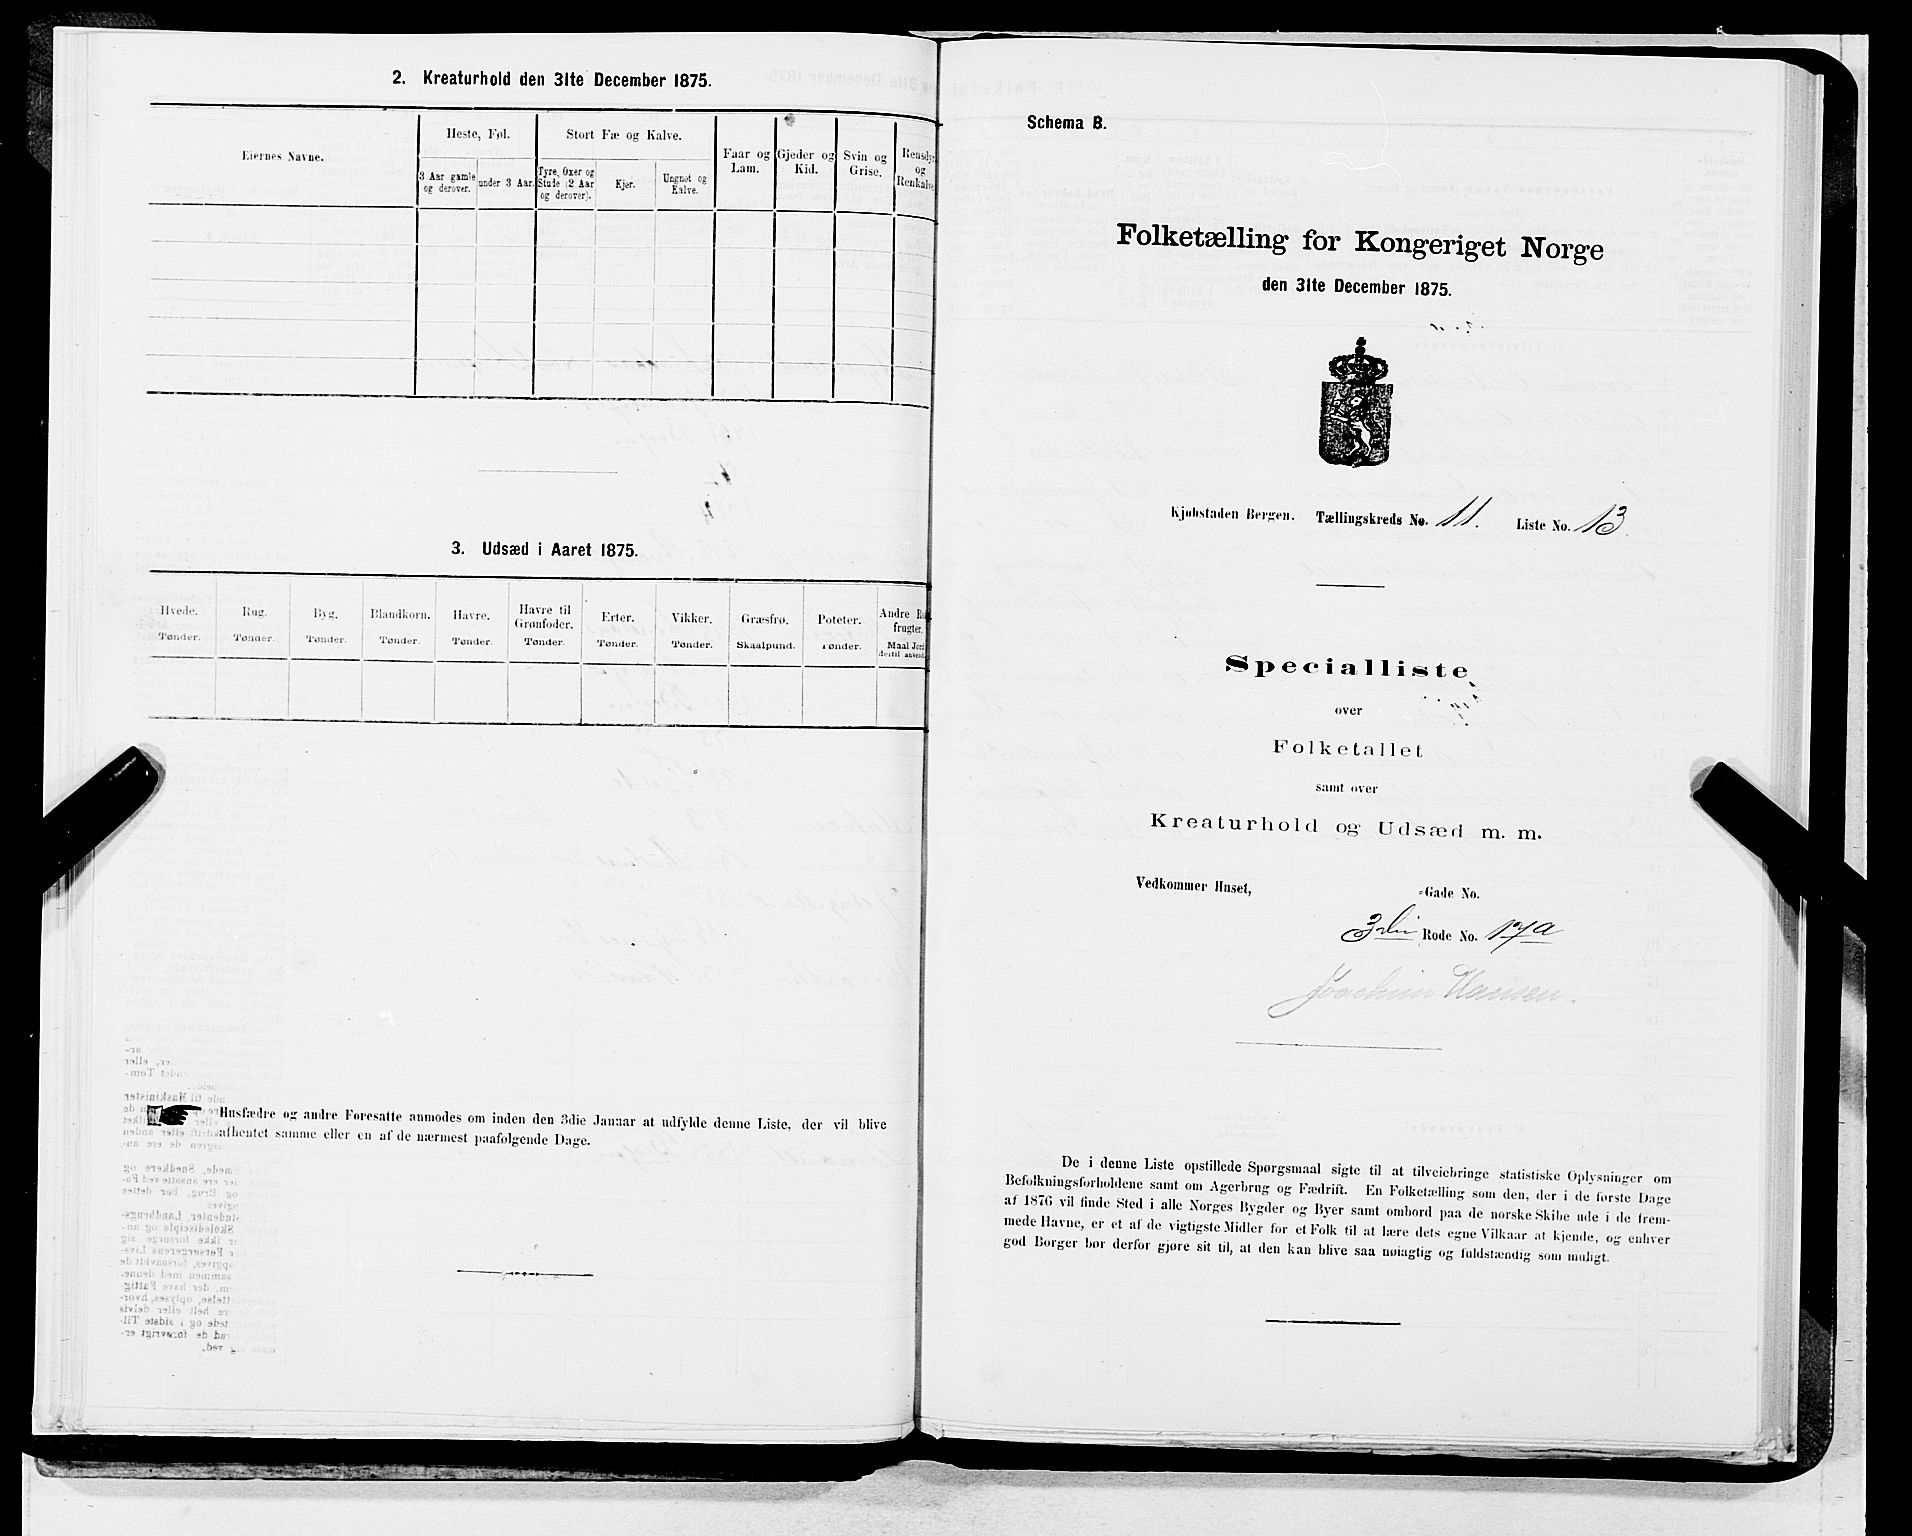 2. Kreaturhold den 31te December 1875.
Eiernes Navne.
Heste, Føl.
3 Aar gamle og derover.
under 3 Aar.
Stort Fæ og Kalve.
Tyre, Oxer og Stude (2 Aar og derover).
Kjør.
Ungnøt og Kalve.
Faar og Lam.
Gjeder og Kid.
Svin og Grise.
Rensdyr og Renkalve.
3. Udsæd i Aaret 1875.
Hvede. Tønder.
Rug. Tønder.
Byg. Tønder.
Blandkorn. Tønder.
Havre. Tønder.
Havre til Grønfoder. Tønder.
Erter. Tønder.
Vikker. Tønder.
Græsfrø. Skaalpund.
Poteter. Tønder.
Andre frugter. Maal Jord dertil
Husfædre og andre Foresatte anmodes om inden den 3die Januar at udfylde denne Liste, der vil blive
afhentet samme eller en af de nærmest paafølgende Dage.
Schema B.
Folketælling for Kongeriget Norge
den 31te December 1875.
Kjøbstaden Bergen. Tællingskreds No. 11. Liste No. 13.
Specialliste
over
Folketallet
samt over
Kreaturhold og Udsæd m. m.
Vedkommer Huset, -Gade No.
3die Rode No. 17a
Joachim Hansen.
De i denne Liste opstillede Spørgsmaal sigte til at tilveiebringe statistiske Oplysninger om
Befolkningsforholdene samt om Agerbrug og Fædrift. En Folketælling som den, der i de første Dage
af 1876 vil finde Sted i alle Norges Bygder og Byer samt ombord paa de norske Skibe ude i de frem-
mede Havne, er et af de vigtigste Midler for et Folk til at lære dets egne Vilkaar at kjende, og enhver
god Borger bør derfor gjøre sit til, at den kan blive saa nøiagtig og fuldstændig som muligt.